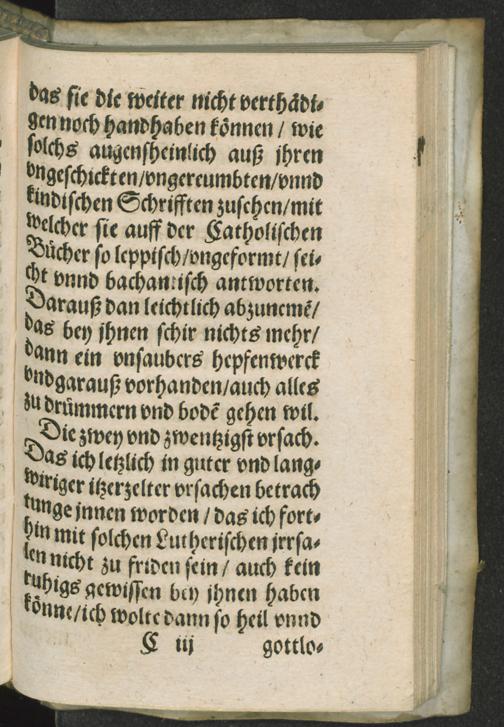 das sie die weiter nicht verthädi⸗
gen noch handhaben können / wie
solchs augensheinlich auß jhren
vngeschickten/vngereumbten/vnnd
kindischen Schrifften zusehen/mit
welcher sie auff der Catholischen
Bücher so leppisch/vngeformt/ sei⸗
cht vnnd bachantisch antworten.
Darauß dan leichtlich abzunemē/
das bey jhnen schir nichts mehr/
dann ein vnsaubers hepfenwerck
vnd garauß vorhanden/auch alles
zu drümmern vnd bodē gehen wil.
Die zwey vnd zwentzigst vrsach.
Das ich letzlich in guter vnd lang⸗
wiriger itzerzelter vrsachen betrach
tunge jnnen worden / das ich fort⸗
hin mit solchen Lutherischen jrrsa⸗
len nicht zu friden sein / auch kein
ruhigs gewissen bey jhnen haben
könne/ich wolte dann so heil vnnd
C iij gottlo⸗